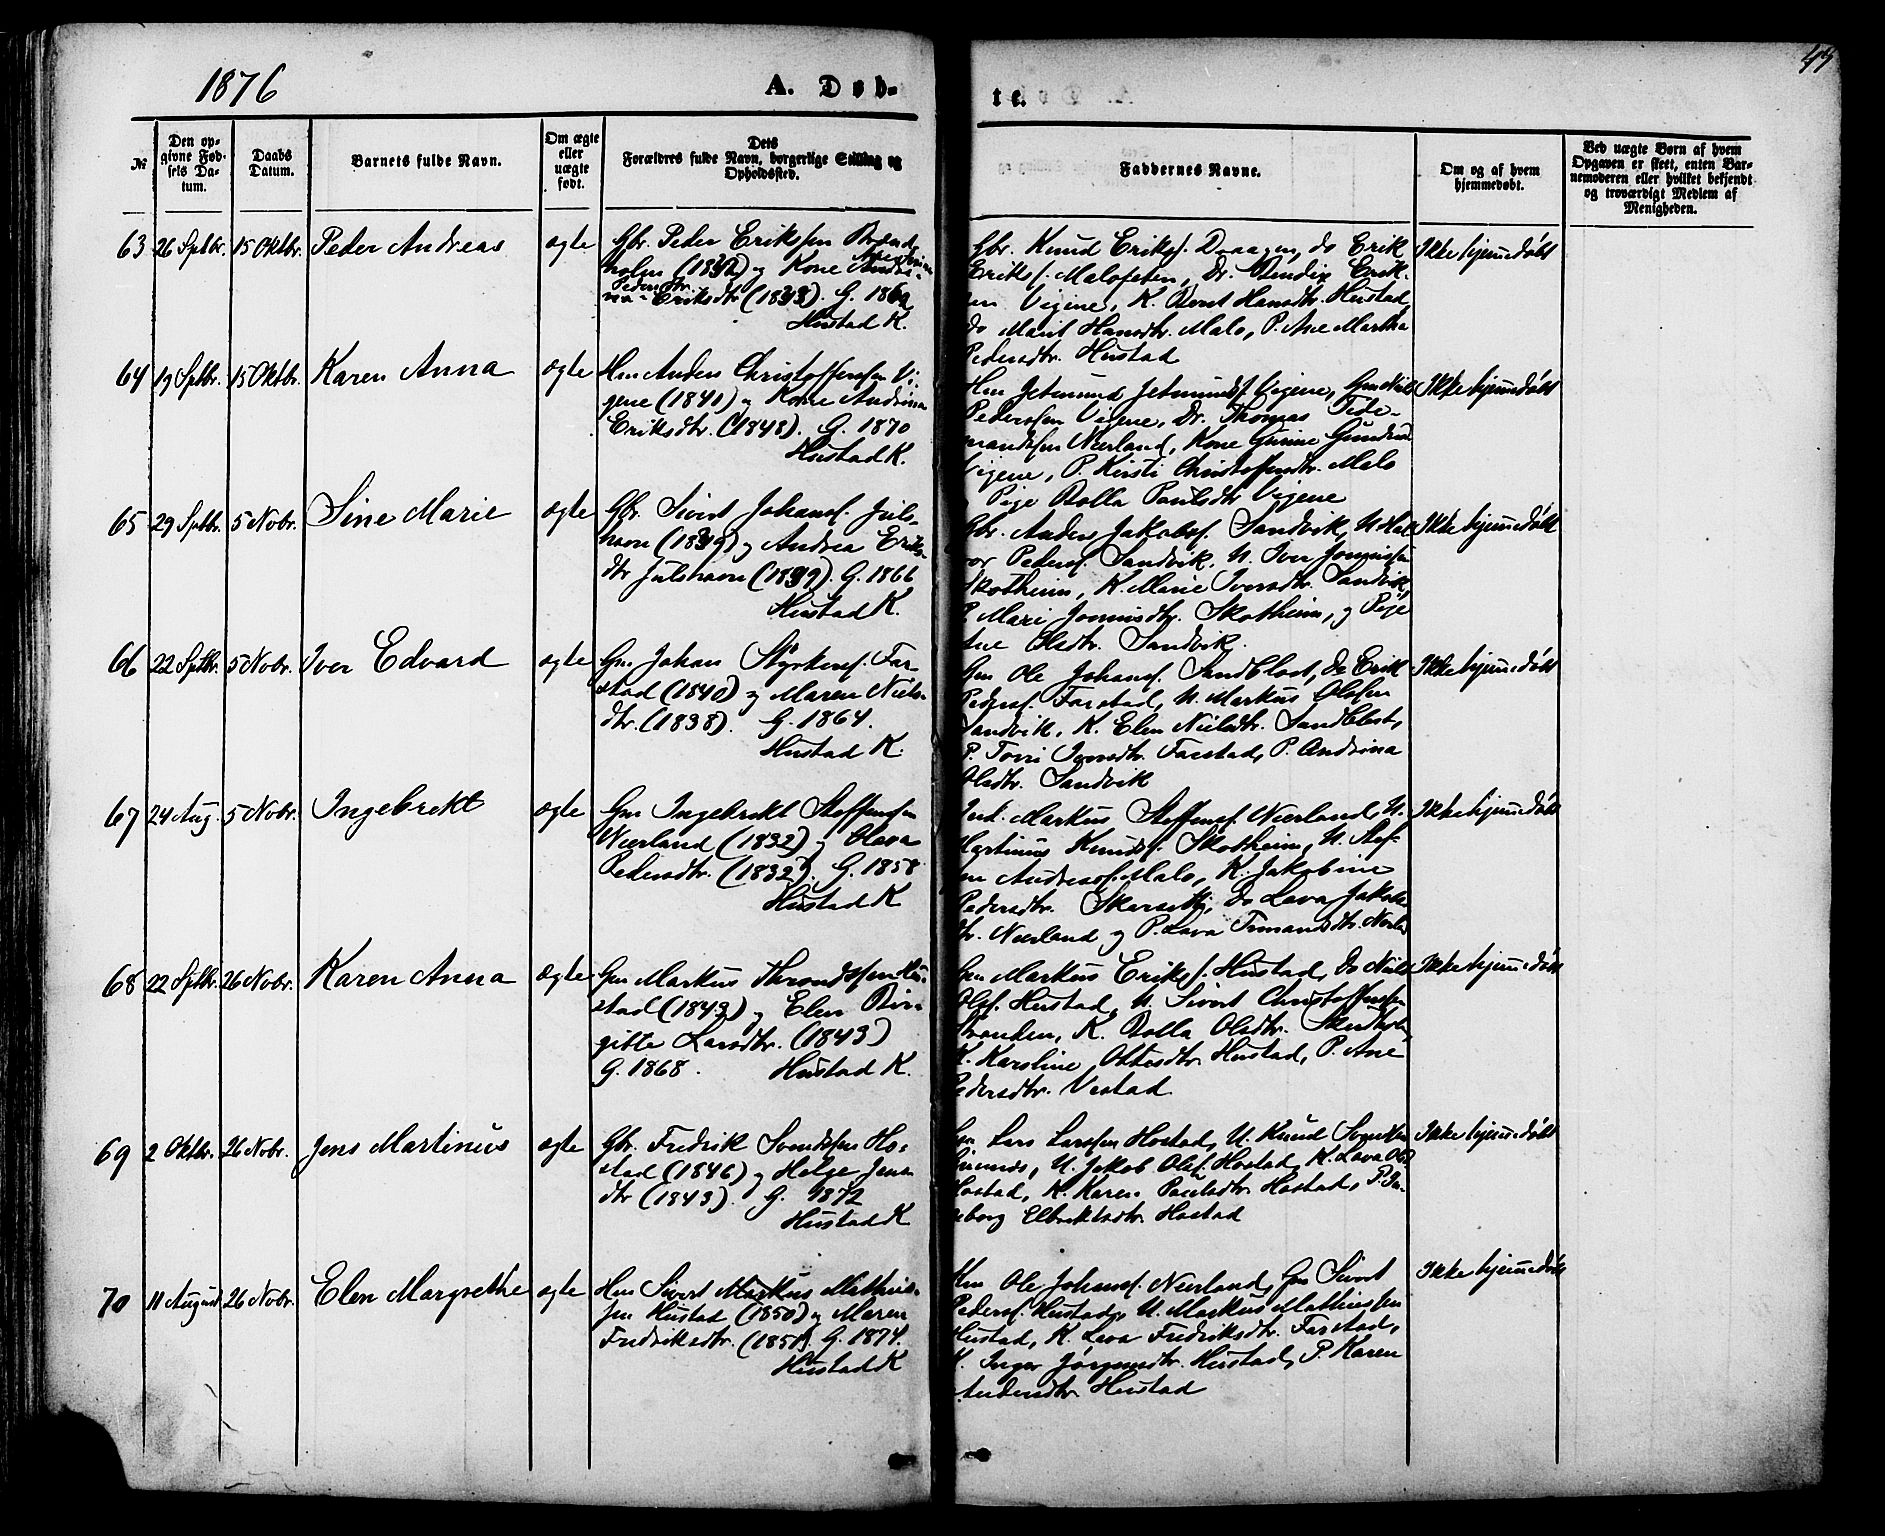 1876
A. Døb-
te.
№
Den op-
givne Fød-
sels Da-
tum.
Daabs
Datum.
Barnets fulde Navn.
Om ægte
eller
uægte
født.
Dets
Forældres fulde Navn, borgerlige Stilling og
Opholdssted.
Faddernes Navne.
Om og af hvem
hjemmedøbt.
Ved uægte Børn af hvem
Opgaven er skeet, enten Bar-
nemoderen eller hvilket bekjendt
og troværdigt Medlem af
Menigheden.
63 26 Sptbr. 15 Oktbr. Peder Andreas ægte
Gbr. Peder Eriksen
holm og Kone
Eriksdtr.
Hustad K.
Gbr. Knud Eriks. Draagen, do Erik
Eriks. Malefeten, Dr. Erik-
Vigene, K. Hansdtr. Hustad,
do Marit Hansdtr. Malo, P. Ane Martha
Pedersdtr. Hustad
Ikke hjemmedøbt
64 19 Sptbr. 15 Oktbr. Karen Anna ægte
Hm Anders Christoffersen Vi-
gene (1841) og Kone Andrina
Eriksdtr. (1848). G. 1870
Hustad K.
Hm Jetmund Jetmunds. Vigene, Niels
Pedersen Vigene, Dr. Thomas Tide-
mandsen Nerland, Kone Gurine
Vigene, P. Kirsti Christoffersdtr. Malo
Pige Bolla Paulsdtr Vigene
Ikke hjemmedøbt
65 29 Sptbr. 5 Novbr. Sine Marie ægte
Gbr. Sivert Johans. Juls-
havn og Andrea Eriks-
dtr Julshavn G. 1866
Hustad K.
Gbr. Anders Jakobs. Sandvik, U. Hal-
vor Peders. Sandvik, U. Iver
Skotheim, K. Marie Iversdtr. Sandvik,
P. Mari Skotheim, og Pige
Ane Olsdtr. Sandvik.
Ikke hjemmedøbt
66 22 Sptbr. 5 Novbr. Iver Edvard ægte
Gm Johan Styrkers. Far-
stad (1840) og Maren Niels-
dtr. (1838). G. 1864.
Hustad K.
Gm Ole Johans. Sandblost, do Erik
Peders. Farstad, U. Markus Olsen
Sandvik, K. Elen Nielsdtr. Sandblost,
P. Farstad, P. Andrina
Olsdtr. Sandvik
Ikke hjemmedøbt
67 24 Aug. 5 Novbr. Ingebrekt ægte
Gm Ingebrekt Steffensen
Nerland (1832) og Olava
Pedersdtr. (1832). G. 1858
Hustad K
Markus Steffens. Nerland, U.
Martinus Knuds. Skotheim, U. Stef-
fen Andreas. Malo, K. Jakobine
Pedersdtr. do Lava Jakobs-
dtr. Nerland og P. Lava
Ikke hjemmedøbt
68 22 Sptbr. 26 Novbr. Karen Anna ægte
Gm Markus Throndsen Hu-
stad (1843) og Elen Bir-
gitte Larsdtr. (1843)
G. 1868. Hustad K.
Gm Markus Eriks. Hustad, do Niels
Ols. Hustad, U. Sivert Christoffersen
Stranden, K. Bolla Olsdtr.
K. Karoline Ottesdtr. Hustad, P. Ane
Pedersdtr. Vestad
Ikke hjemmedøbt
69 2 Oktbr. 26 Novbr. Jens Martinus ægte
Gbr. Fredrik Svendsen Ho-
stad (1846) og Helge Jens-
dtr (1843). G. 1872
Hustad K
Gm Lars Larsen Hostad, U. Knud
U. Jakob Ols. Hostad, K. Lava
Hostad, K. Karen Paulsdtr. Hostad, P. In-
geborg Elbrektsdtr. Hostad
Ikke hjemmedøbt
70 11 August 26 Novbr. Elen Margrethe ægte
Hm Sivert Markus Mathias-
sen Hustad (1850) og Maren
Fredriksdtr. (1851) G. 1874.
Hustad K
Hm Ole Johans. Nerland, Gm Sivert
Peders. Hustad, U. Markus Mathiassen
Hustad, K. Lava Fredriksdtr. Farstad,
K. Inger Jørgensdtr. Hustad, P. Karen
Andersdtr. Hustad
Ikke hjemmedøbt